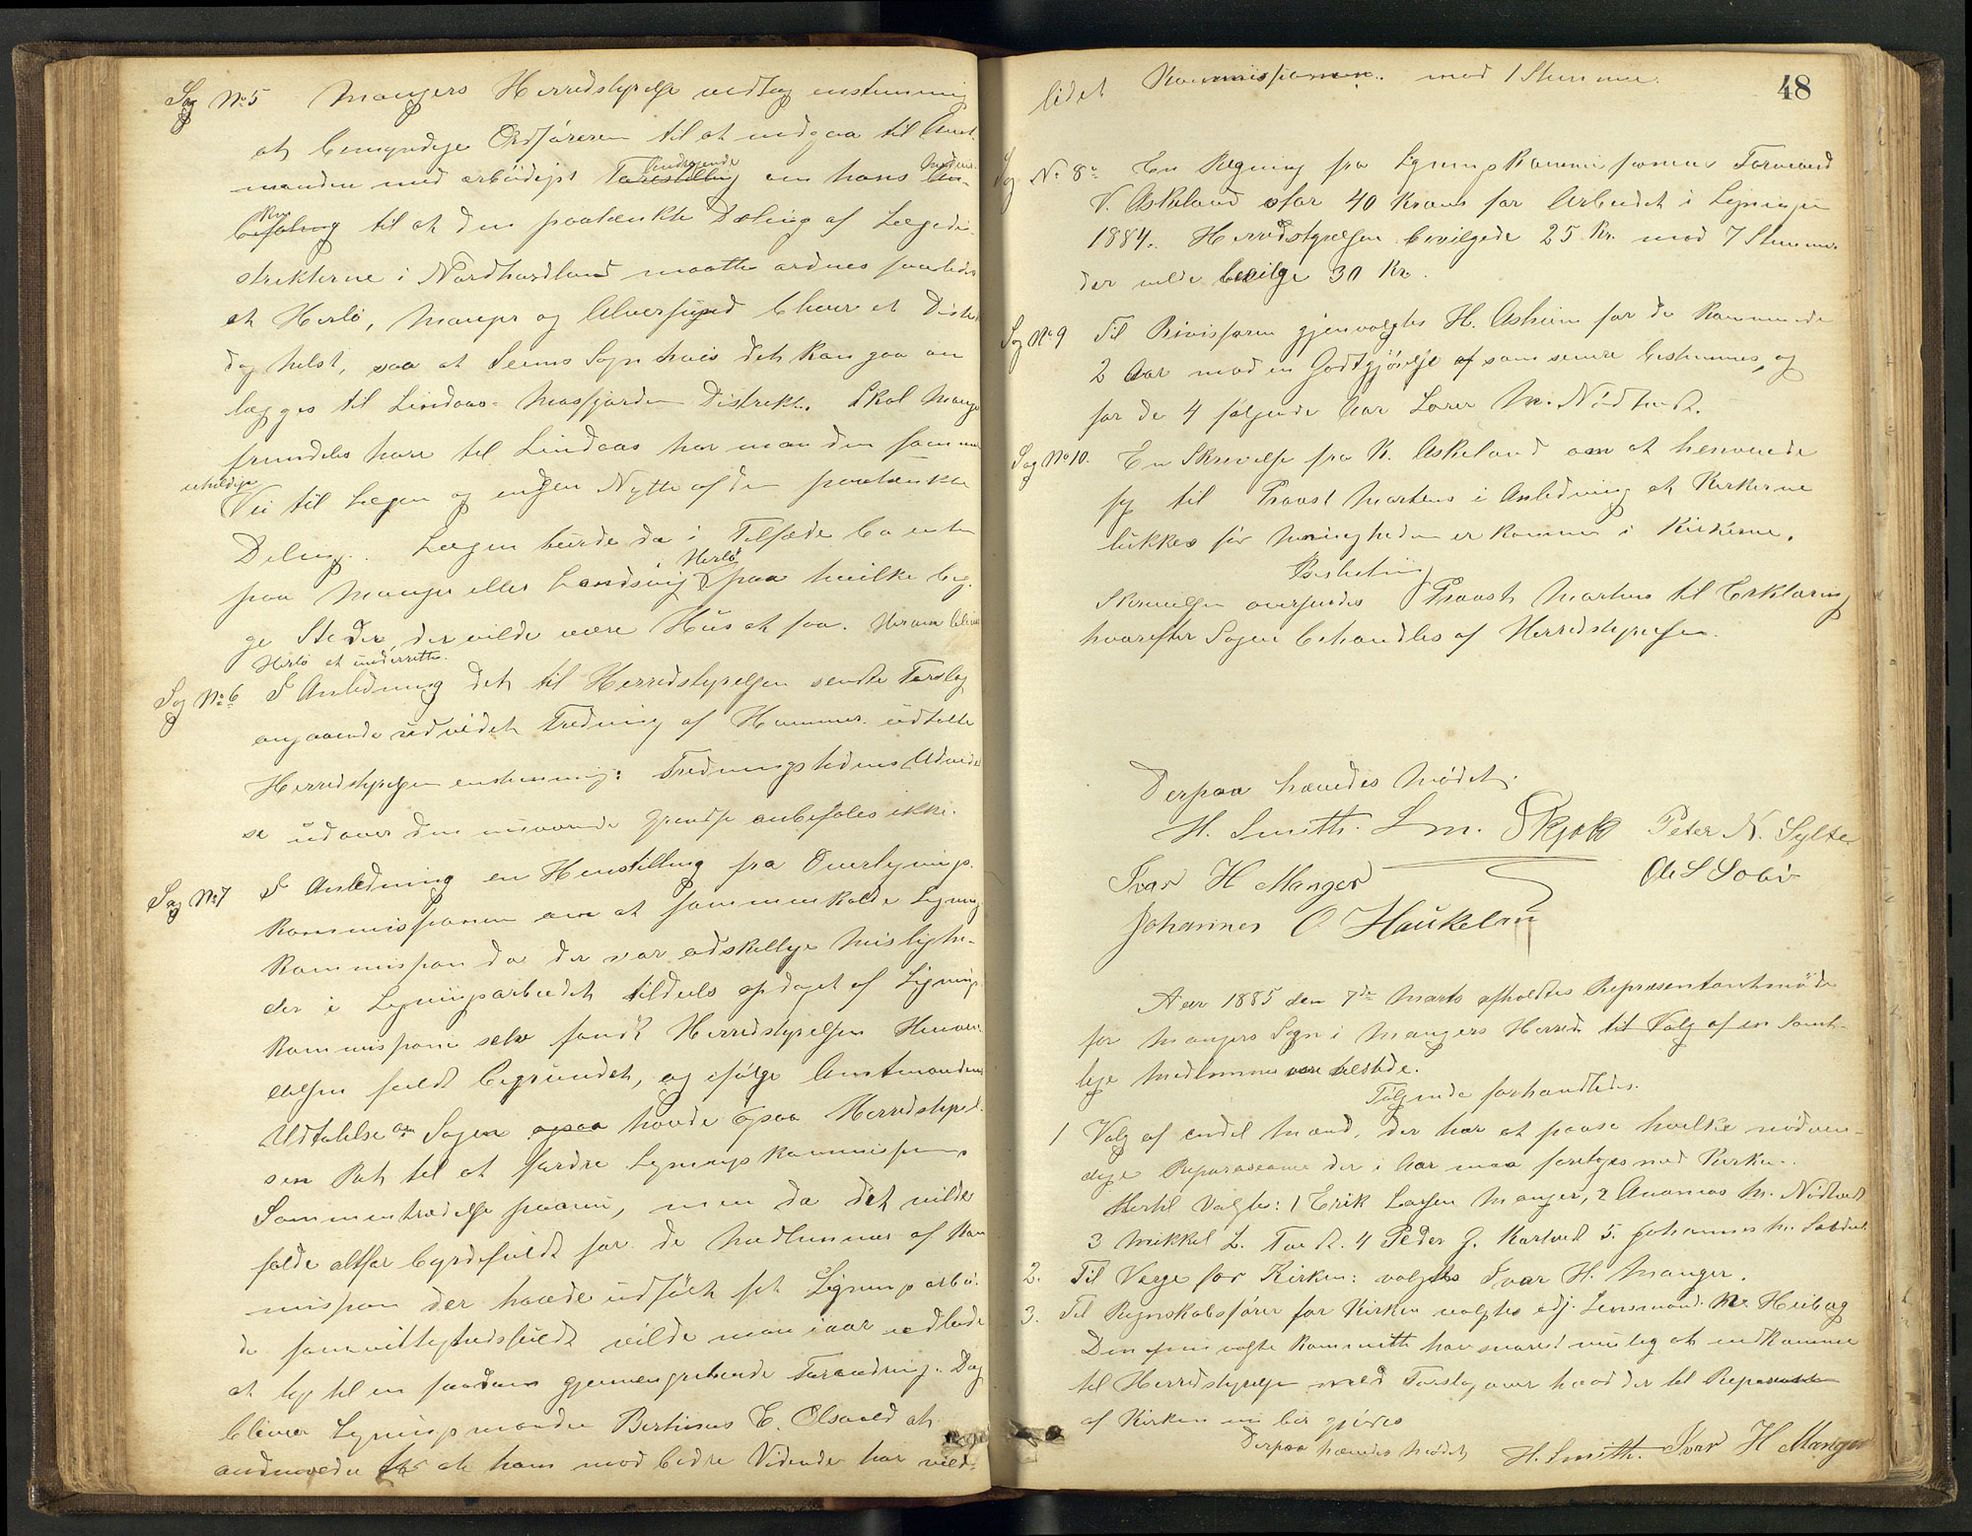 Sag No 5 Mangers Herredstyrelse vedtog enstemmig
at bemyndige Ordføreren til at indgaa til Amt-
manden med ærbødigst Forestilling Andragende om hans An- Medvir-
befaling Kn til at den paatænkte Deling af Lægedi-
strikterne i Nordhordland maatte ordnes saaledes
at Herlø, Manger og Alversund bliver et Distrikt
dog helst, saa at Seims Sogn hvis det kan gaa an
lægges til Lindaas-Masfjorden Distrikt. Skal Manger
fremdeles høre til Lindaas har man den samme
uheldige
Vei til Lægen og ingen Nytte af den paatænkte
Deling. Lægen burde da i Tilfælde bo enten
paa Manger eller Landsvig i Herlø paa hvilke beg-
ge Steder, der vilde være Hus at faa. Herom bliver
Herlø at underrette.
Sag No 6 I Anledning det til Herredstyrelsen sendte Forslag
angaaende udvidet Fredning af Hummer udtalte
Herredstyrelsen enstemmig: Fredningstidens Udvidel-
se udover den nuværende Grændse anbefales ikke.
Sag No 7 I Anledning en Henstilling fra Overlignings-
kommissionen om at sammenkalde Lignings-
kommission da der var adskillige Misligho-
der i Ligningsarbeidet tildels opdaget af Lignings-
kommissionen selv fandt Herredstyrelsen Henven-
delsen fuldt begrundet, og ifølge Amtmandens
Udtalelse om Sagen ogsaa havde ogsaa Herredstyrel-
sen Ret til at fordre Ligningskommissionens
Sammentrædelse paany, men da det vilde
falde altfor byrdefuldt for de Medlemmer af Kom
mission der havde udført sit Ligningsarbei-
de samvittighedsfuldt vilde man iaar undlade
at lig til en saadan gjennemgribende Forandring. Dog
bliver Ligningsmanden Bertinus E. Olsvold at
andmode at ham mod bedre Vidende har vild-
48
ledet Kommissionen. mod 1 Stemme.
Sag No 8 En Regning fra Ligningskommissionens Formand
V. Askeland stor 40 Kroner for Arbeidet i Ligningen
1884. Herredstyrelsen bevilgede 25 Kr. mod 7 Stemmer
der vilde bevilge 30 Kr.
Sag No 9 Til Revisoren gjenvalgtes H. Asheim for de kommende
2 Aar mod en Godtgjørelse af som senere bestemmes, og
for de 4 følgende Aar Lærer M. Nødtvedt.
Sag No 10. En Skrivelse fra K. Askeland om at henvende
sig til Provst Martens i Anledning at Kirkerne
lukkes før Menigheden er kommen i Kirkerne.
Beslutning
Skrivelsen oversendes Provst Martens til Erklæring
hvorefter Sagen behandles af Herredstyrelsen.
Derpaa hævedes Mødet.
H. Smith. L m. Skjelb Peter N. Sylte
Ivar H Manger Ole S Sobø
Johannes O Haukelan
Aar 1885 den 7de Marts afholdtes Repræsentantmøde
for Mangers Sogn i Mangers Herred til Valg af en Samt-
lige Medlemmer var tilstede.
Følgende forhandledes.
1 Valg af endel Mænd, der har at paase hvilke nødven-
dige Reparationer der i Aar maa foretages med Kirken.
Hertil Valgtes: 1 Erik Larsen Manger, 2 Ananias M. Nødtvedt
3 Mikkel L. Toft. 4 Peder J. Kartveit 5. Johannes M. Sætdal
2. Til Verge for Kirken: valgtes Ivar H. Manger.
3. Til Regnskabsfører for Kirken valgtes edj. Lensmand M. Heiberg
Den ovenvalgte Kommitte har snarest mulig at indkomme
til Herredstyrelsen med Forslag over hvad der til Reparation
af Kirken nu bør gjøres
Derpaa hævedes Mødet H. Smith. Ivar H Manger